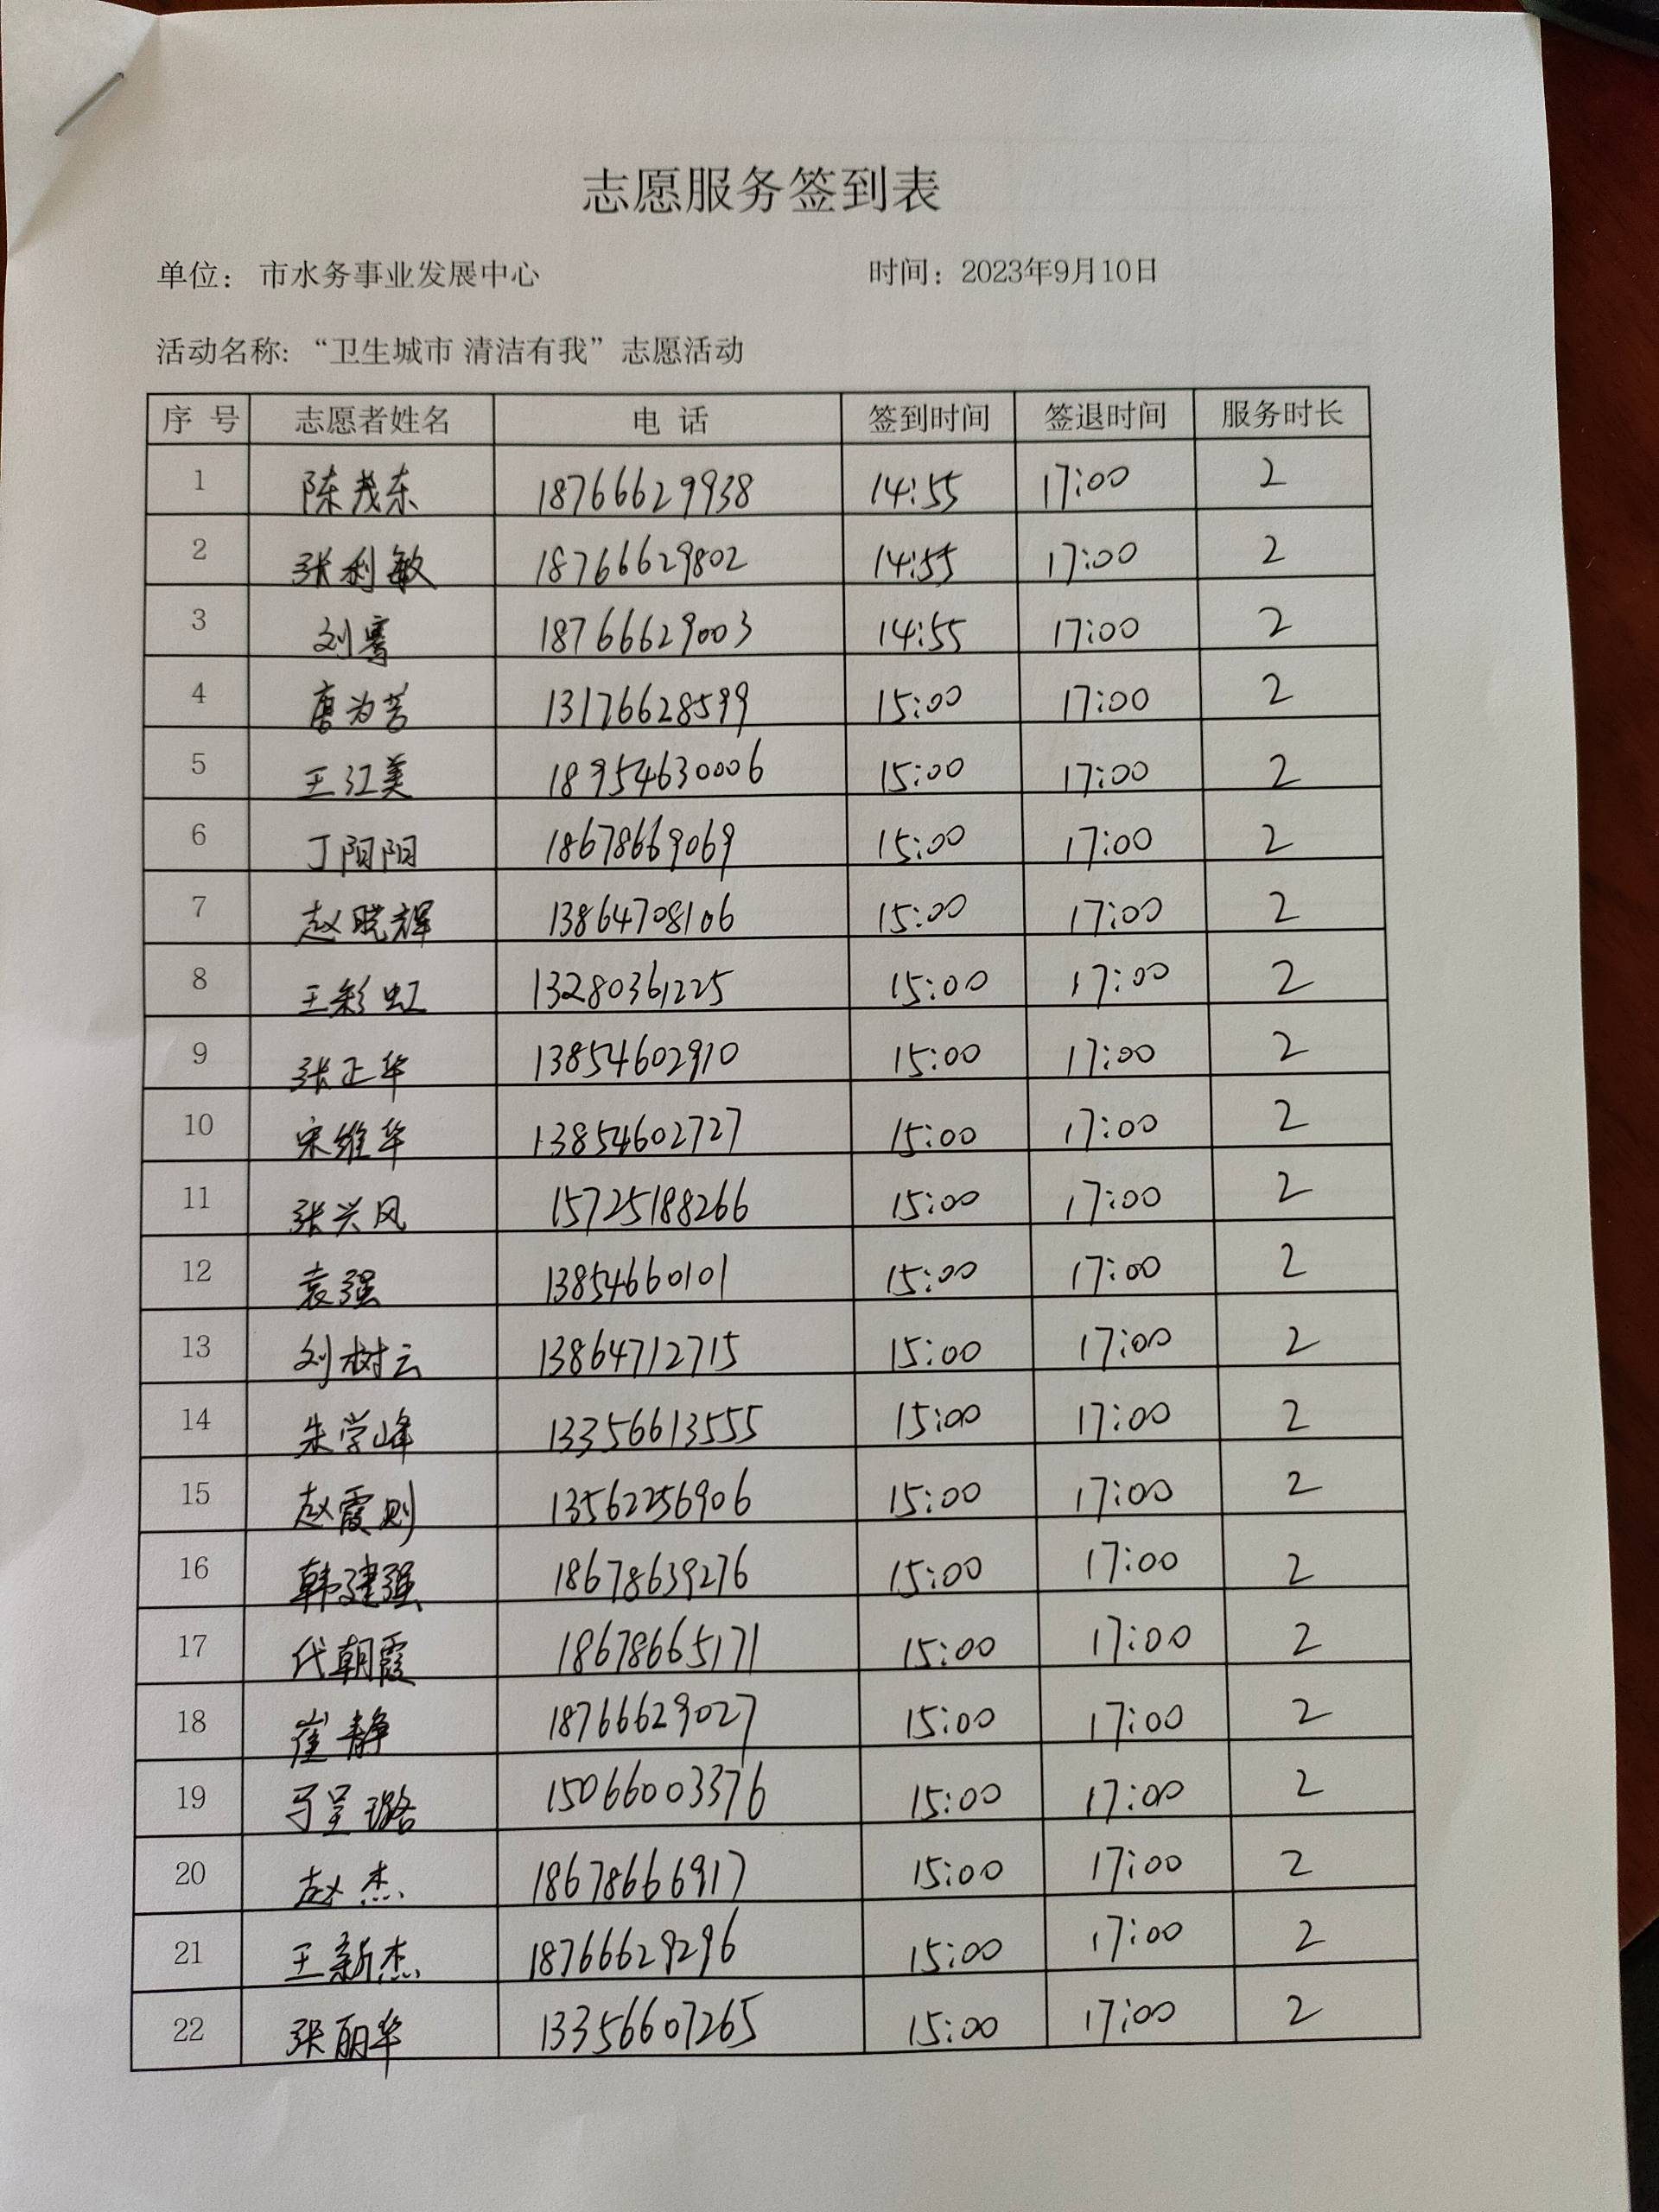 志愿服务签到表
单位： 市水务事业发展中心 时间：2023年9月10日
活动名称：“卫生城市 清洁有我”志愿活动
序 号 志愿者姓名 电 话 签到时间 签退时间 服务时长
1 陈茂东 18766629938 14:55 17:00 2
2 张利敏 18766629802 14:55 17:00 2
3 刘骞 18766629003 14:55 17:00 2
4 唐为芳 13176628599 15:00 17:00 2
5 王江美 18954630006 15:00 17:00 2
6 丁阳阳 18678669069 15:00 17:00 2
7 赵晓辉 13864708106 15:00 17:00 2
8 王彩虹 13280361225 15:00 17:00 2
9 张正华 13854602910 15:00 17:00 2
10 宋维华 13854602727 15:00 17:00 2
11 张兴风 15725188266 15:00 17:00 2
12 袁强 13854660101 15:00 17:00 2
13 刘树云 13864712715 15:00 17:00 2
14 朱学峰 13356613555 15:00 17:00 2
15 赵霞则 13562256906 15:00 17:00 2
16 韩建强 18678639276 15:00 17:00 2
17 代朝霞 18678665171 15:00 17:00 2
18 崔静 18766629027 15:00 17:00 2
19 15066003376 15:00 17:00 2
20 赵杰 18678666917 15:00 17:00 2
21 王新杰 18766629296 15:00 17:00 2
22 张丽华 13356607265 15:00 17:00 2